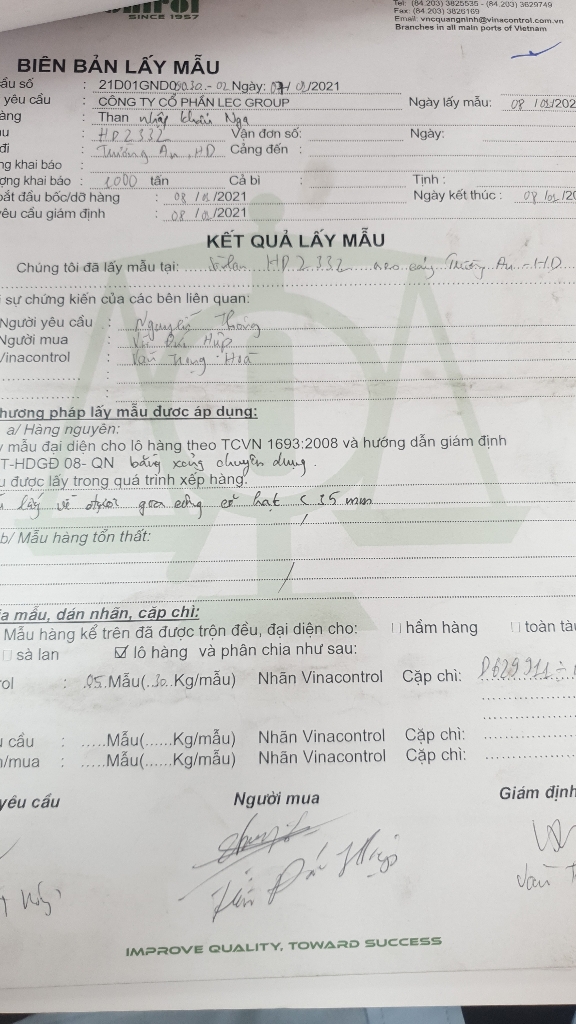 SINCE 1957
Tel: (84.203) 3825535 - (84.203) 3629749
Fax: (84.203) 3826169
Email: vncquangninh@vinacontrol.com.vn
Branches in all main ports of Vietnam
BIÊN BẢN LẤY MẪU
ẫu số : 21D01GND0 -02 Ngày: /2021
yêu cầu : CÔNG TY CỔ PHẦN LEC GROUP Ngày lấy mẫu: 08 /01/202
àng : Than nhập khẩu Nga
u : HD2332 Vận đơn số: Ngày:
đi : Trường An, HD Cảng đến :
ng khai báo :
ợng khai báo : 1000 tấn Cả bì : Tịnh :
bắt đầu bốc/dỡ hàng : 08 /01/2021 Ngày kết thúc : 08 /01/20
yêu cầu giám định : 08 /01/2021
KẾT QUẢ LẤY MẪU
Chúng tôi đã lấy mẫu tại: HD2332 neo cảng Trường An - HD
sự chứng kiến của các bên liên quan:
Người yêu cầu : Nguyễn
Người mua :
Vinacontrol : Văn Trọng Hoá
hương pháp lấy mẫu được áp dụng:
a/ Hàng nguyên:
mẫu đại diện cho lô hàng theo TCVN 1693:2008 và hướng dẫn giám định
T-HDGĐ 08- QN bằng xẻng chuyên dụng.
u được lấy trong quá trình xếp hàng.
lấy về được gia công cỡ hạt < 35 mm
b/ Mẫu hàng tổn thất:
ia mẫu, dán nhãn, cặp chì:
Mẫu hàng kể trên đã được trộn đều, đại diện cho: hầm hàng toàn tà
sà lan ☑ lô hàng và phân chia như sau:
rol : .05.Mẫu(.30.Kg/mẫu) Nhãn Vinacontrol Cặp chì: D629911÷
u cầu : .....Mẫu(......Kg/mẫu) Nhãn Vinacontrol Cặp chì:
n/mua : .....Mẫu(......Kg/mẫu) Nhãn Vinacontrol Cặp chì:
yêu cầu Người mua Giám định
IMPROVE QUALITY, TOWARD SUCCESS